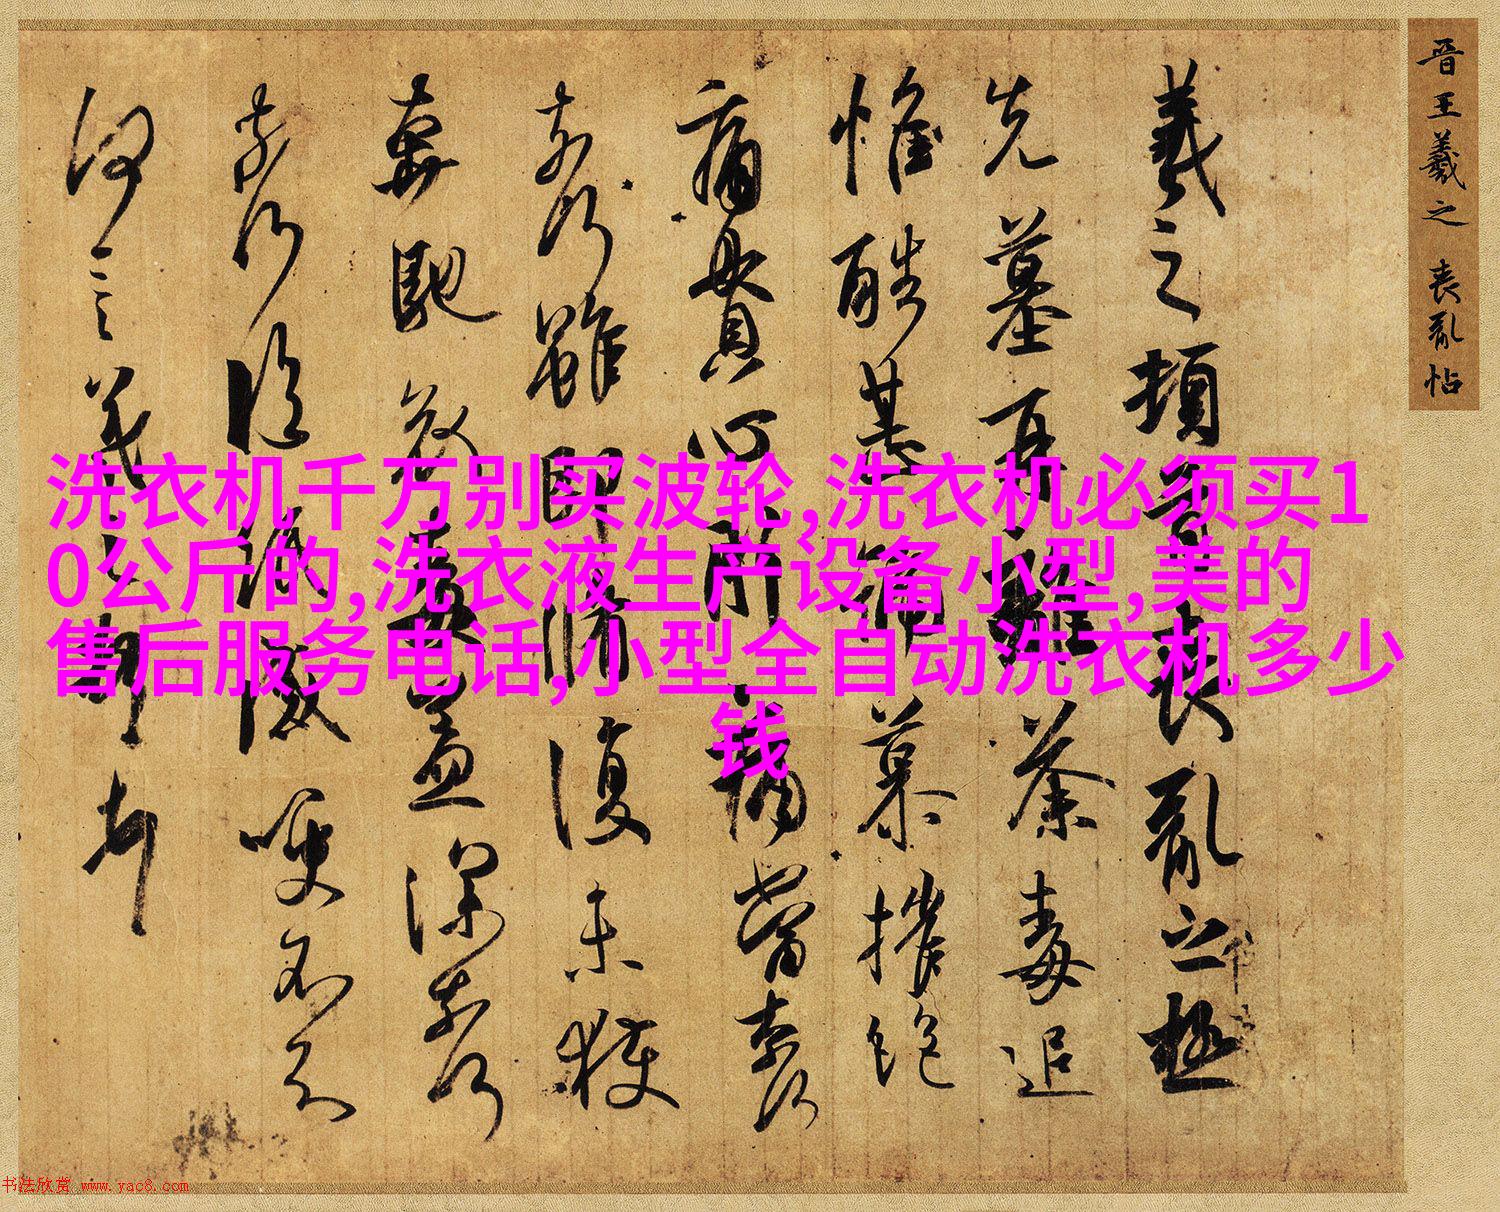 晋王羲之 喪亂帖
羲之頓首喪亂之極
先墓再離荼毒追
惟酷甚號慕摧絕
痛貫心肝痛當奈何
奈何雖即脩復未獲
奔馳哀毒益深奈何
奈何臨紙感哽不知
何言羲之頓首
洗衣机千万别买波轮,洗衣机必须买1
0公斤的,洗衣液生产设备小型,美的
售后服务电话,小型全自动洗衣机多少
钱
书法欣赏 www.yac8.com